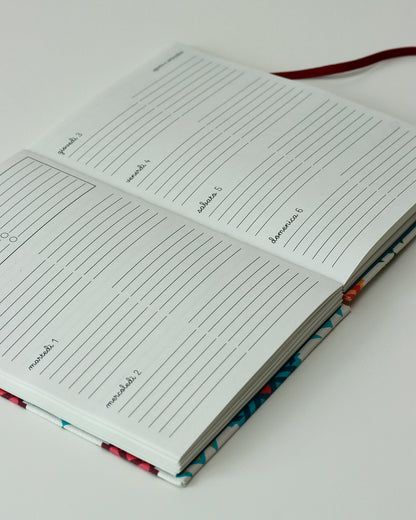 martedì 1
mercoledì 2
giovedì 3
venerdì 4
sabato 5
domenica 6